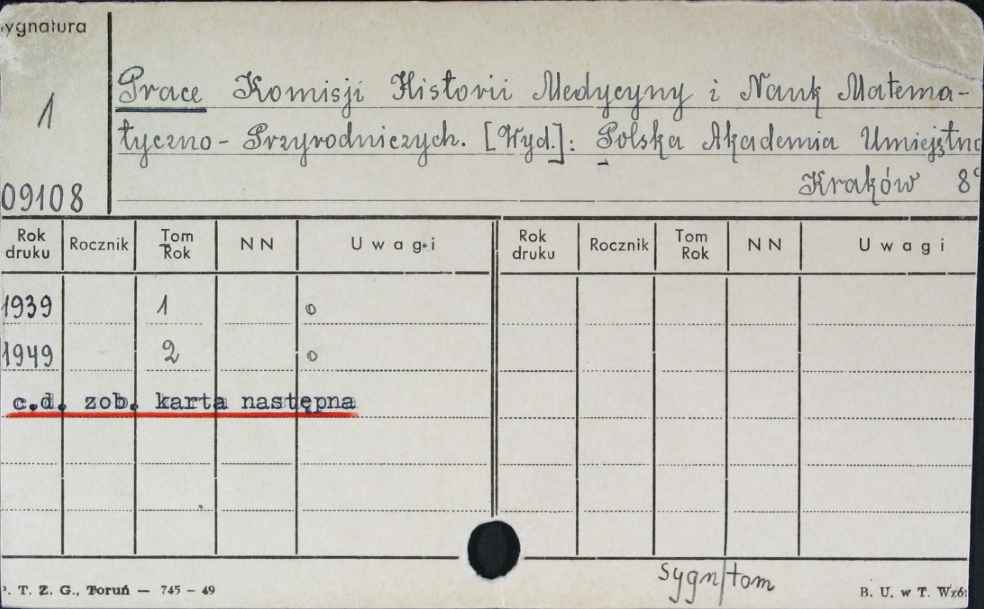 ygnatura
1
09108
Prace Komisji Historii Medycyny i Nauk Matema-
tyczno-Przyrodniczych. [Wyd.]: Polska Akademia Umiejętno
Kraków 8°
Rok druku Rocznik Tom Rok NN Uwagi Rok druku Rocznik Tom Rok NN Uwagi
1939 1 o
1949 2 o
c.d. zob. karta następna
sygn/tom
. T. Z. G., Toruń — 745 - 49
B. U. w T. Wzó